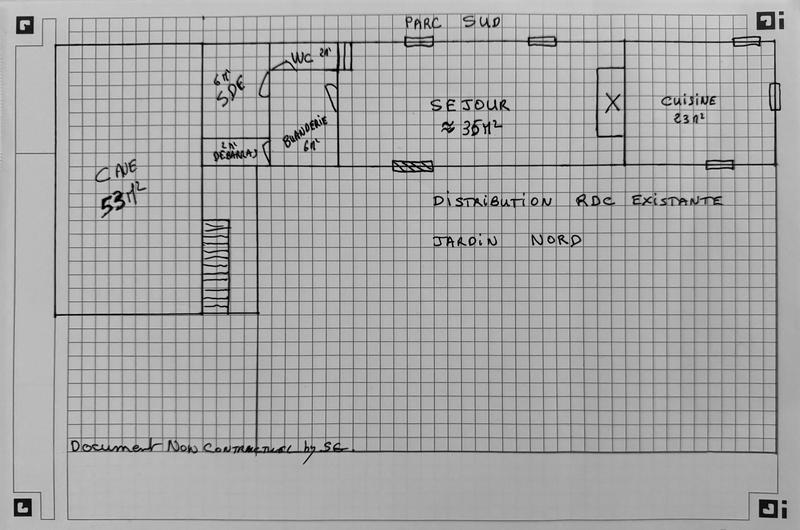 PARC SUD
WC 2m²
6m²
SDE
SEJOUR
≈ 35m²
CUISINE
23m²
BUANDERIE
6m²
2m²
DEBARRAS
CAVE
53m²
DISTRIBUTION RDC EXISTANTE
JARDIN NORD
Document NON CONTRACTUEL by SE.